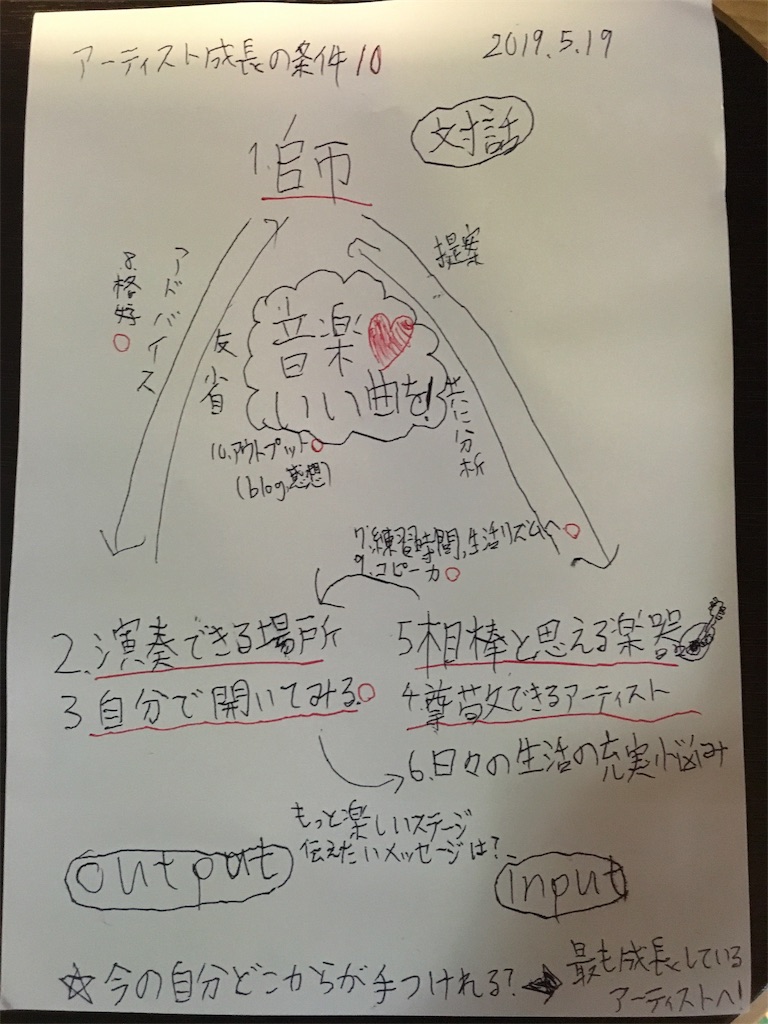 アーティスト成長の条件10
2019.5.19
対話
1.師
提案
アドバイス
8.格好
反省
音楽
いい曲を!
共に分析
10.アウトプット
(blog,感想)
7.練習時間,生活リズムへ
9.コピー力
2.演奏できる場所
5相棒と思える楽器
3自分で開いてみる
4.尊敬できるアーティスト
6.日々の生活の充実,悩み
もっと楽しいステージ
伝えたいメッセージは?
output
input
☆今の自分どこからが手つけれる?➡最も成長している
アーティストへ!